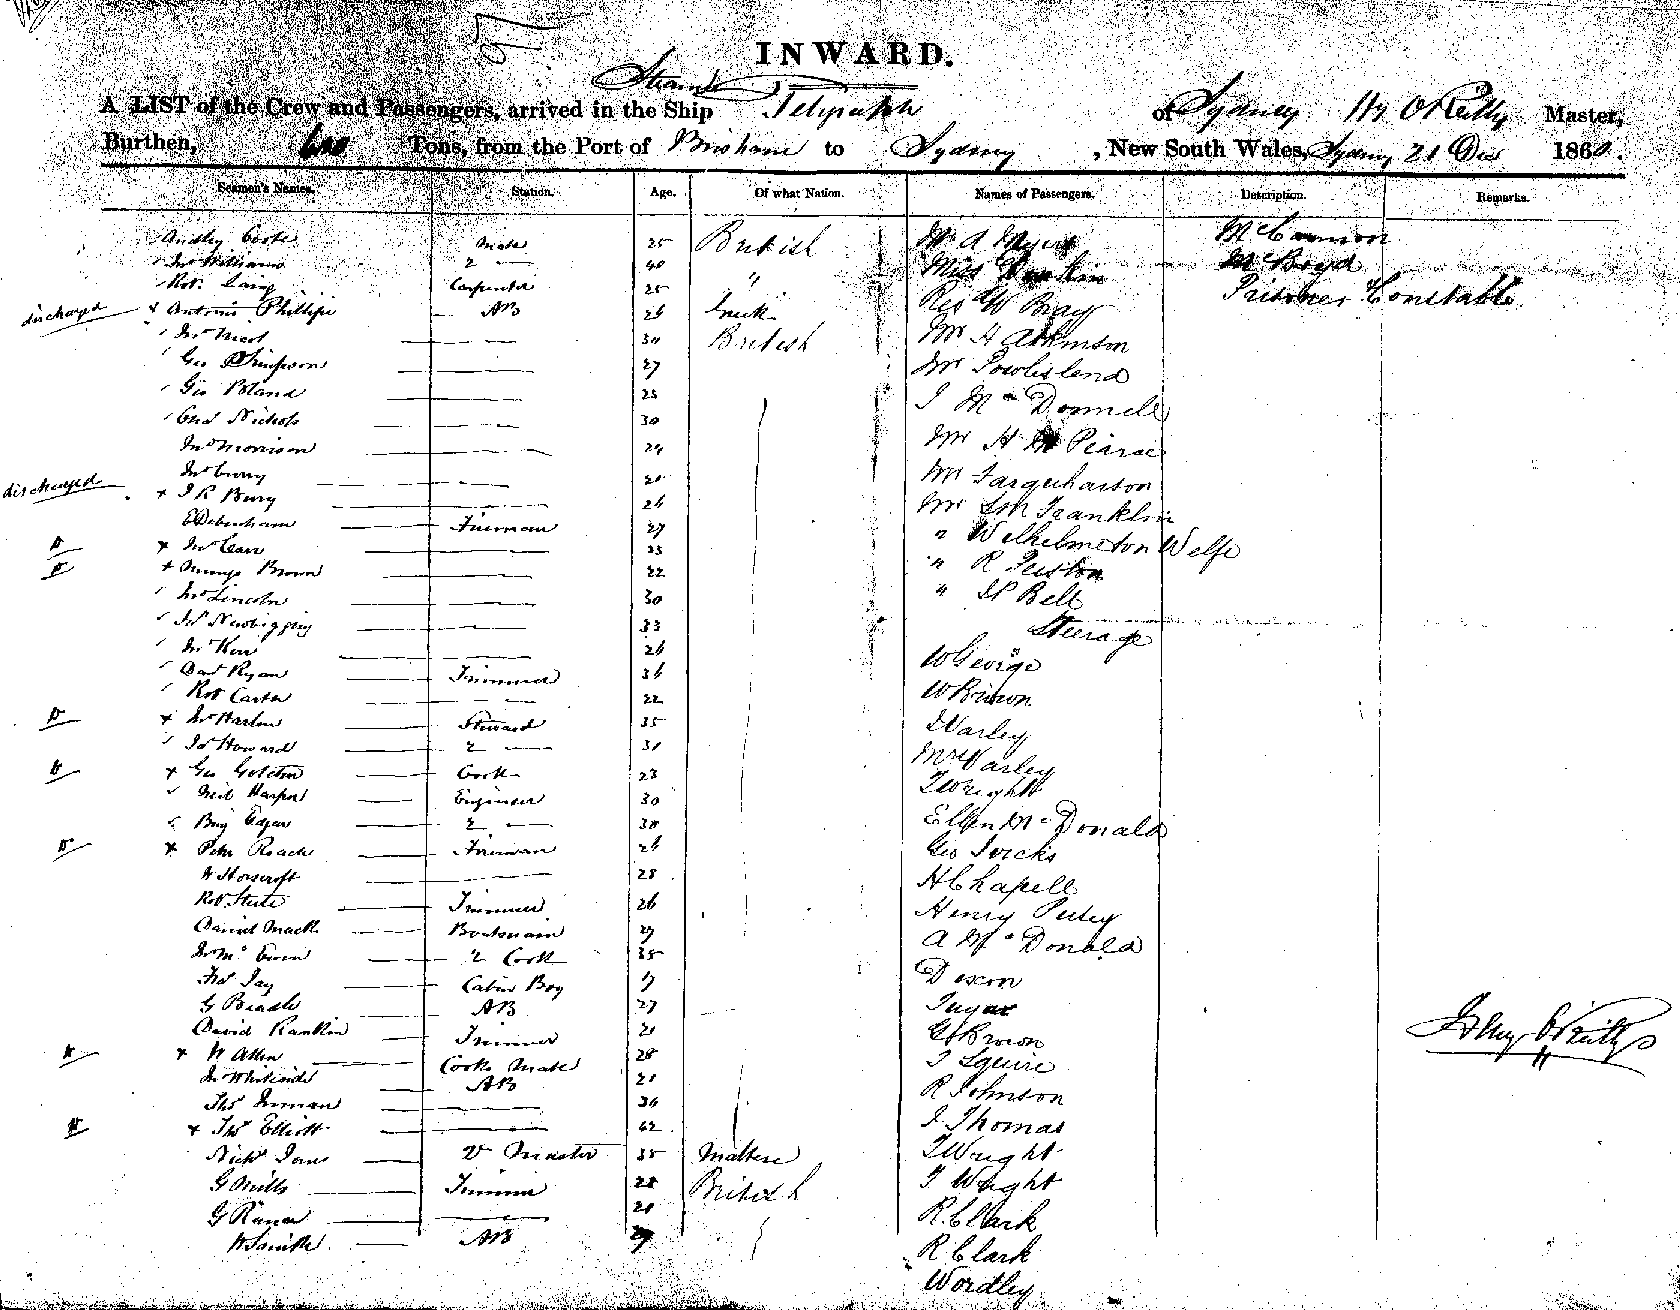 INWARD.
Steam
A LIST of the Crew and Passengers, arrived in the Ship Telegraph of Sydney Hy O'Reilly Master,
Burthen, 600 Tons, from the Port of Brisbane to Sydney, New South Wales, Sydney 21 Dec 1860.
Seamen's Names. Station. Age. Of what Nation. Names of Passengers. Description. Remarks.
Audley Coote Mate 25 British Mr A McConnon
Jno Williams 2 — 40 Miss Rankin Mc Boyd
Robt Laing Carpenter 25 " Rev W Bray Prisoner Constable
discharged x Antonio Phillipi AB 26 Greek Mr H Atkinson
Jno Nicol — 30 British Mr Powlesland
Geo Simpson — 27 J McDonnell
Geo Bland — 25 Mr H Pearse
Chas Nichols — 30 Mr Farquharson
Jno Morrison — 24 Mr Franklin
Jno Curry — " Wilhelm Welfe
discharged x J R Bury — 26 " R
E Debenham Fireman 27 " Bell
D x Jno Carr — 23 Steerage
D x Mungo Brown — 22 W George
Jno Lincoln — 30 W Brown
Jas Newbigging — 33 Varley
Jno Kerr — 26 Mrs Varley
Dad Ryan Trimmer 36 T Wright
Robt Carter — 22 Ellen McDonald
D x Jno Harlow Steward 35 Geo
Jas Howard 2 — 31 H Chapell
D x Geo Cook 23 Henry
Neil Harper Engineer 30 A McDonald
Benj Edgar 2 — 30 Dixon
D x Peter Roach Fireman 26
W Horscroft — 25 G Brown
Robt Steele Trimmer 26 J Squire
David Mack Boatswain 29 R Johnson
Jno McEwen 2 Cook 35 J Thomas
Fred Jay Cabin Boy 17 T Wright
G Beadle AB 27 T Wright
David Rankin Trimmer 21 R. Clark
D x W Allen Cooks Mate 28 R Clark
Jno Whiteside AB 21 Wordley
Thos Inman — 34
D x Thos Elliott — 42
Nichs Master 35 Maltese
G Mills Trimmer 28 British
G — 20
W Smith AB 29
Henry O'Reilly